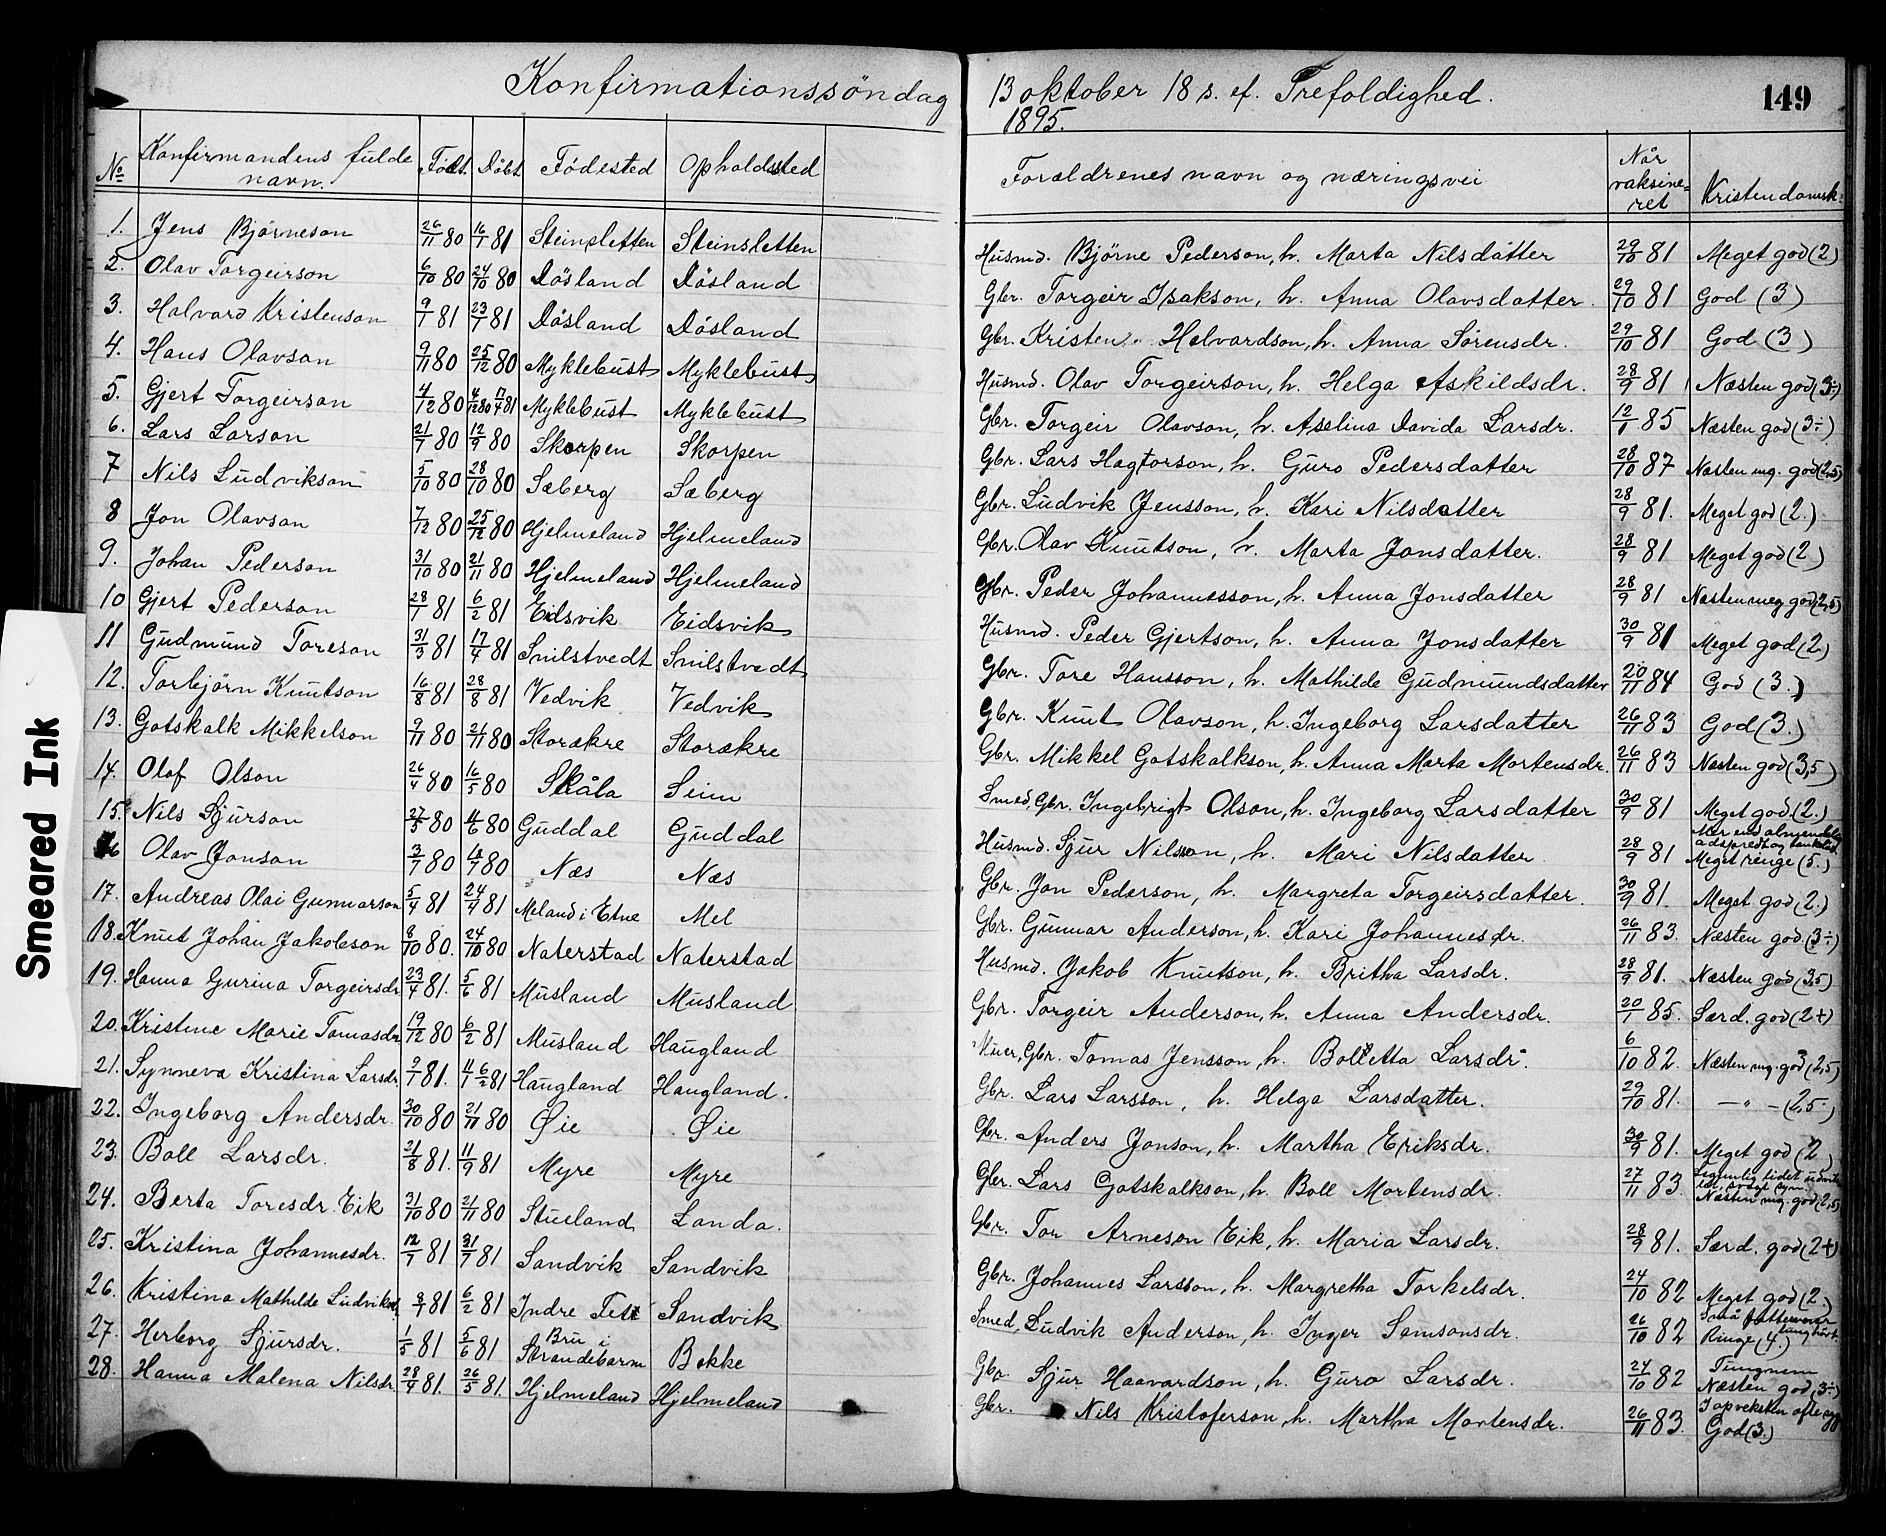 Konfirmationssöndag 13 oktober 18 s. ef. Trefoldighed. 149
1895.
No Konfirmandens fulde navn. Födt. Döbt Födested Opholdssted Foreldrenes navn og næringsvei Når vaksineret Kristendomsk.
1. Jens Björneson 26/11 80 16/1 81 Steinsletten Steinsletten Husmd. Björne Pederson, h. Marta Nilsdatter 29/10 81 Meget god (2)
2. Olav Torgeirson 6/10 80 24/10 80 Dösland Dösland Gbr. Torgeir Isakson, h. Anna Olavsdatter. 29/10 81 God (3)
3. Halvard Kristenson 9/7 81 23/7 81 Dösland Dösland Gbr. Kristen Halvardson, h. Anna Sörensdr. 29/10 81 God (3)
4. Hans Olavson 9/11 80 25/12 80 Myklebust Myklebust Husmd. Olav Torgeirson, h. Helga Askildsdr. 28/9 81 Næsten god (3÷)
5. Gjert Torgeirson 4/12 80 4/12 80 17/4 81 Myklebust Myklebust Gbr. Torgeir Olavson, h. Asseline Davida Larsdr. 12/1 85 Næsten god (3÷)
6. Lars Larson 21/7 80 12/9 80 Skorpen Skorpen Gbr. Lars Hagtorson, h. Guro Pedersdatter 28/10 87 Næsten mg. god (2,5)
7 Nils Ludvikson 5/10 80 28/10 80 Sæberg Sæberg Gbr. Ludvik Jensson, h. Kari Nilsdatter 28/9 81. Meget god (2.)
8 Jon Olavson 7/12 80 25/12 80 Hjelmeland Hjelmeland Gbr. Olav Knutson, h. Marta Jonsdatter. 28/9 81 Meget god (2)
9. Johan Pederson 31/10 80 21/11 80 Hjelmeland Hjelmeland Gbr. Peder Johannesson, h. Anna Jonsdatter 28/9 81 Næsten meg god (2,5)
10 Gjert Pederson 28/1 81 6/2 81 Eidsvik Eidsvik Husmd. Peder Gjertson, h. Anna Jonsdatter 30/9 81 Meget god (2)
11 Gudmund Toreson 31/3 81 17/4 81 Snilstvedt Snilstvedt Gbr. Tore Hansson, h. Mathilde Gudmundsdatter 20/11 84 God (3.)
12. Torbjörn Knutson 16/8 81 28/8 81 Vedvik Vedvik Gbr. Knut Olavson, h. Ingeborg Larsdatter 26/11 83 God (3.)
13. Gotskalk Mikkelson 9/11 80 21/11 80 Storækre Storækre Gbr. Mikkel Gotskalkson, h. Anna Marta Mortensdr. 26/11 83 Næsten god (3,5)
14. Olaf Olson 26/4 80 16/5 80 Skåla Seim Smed, Gbr. Ingebrigt Olson, h. Ingeborg Larsdatter 30/9 81 Meget god (2.)
15. Nils Sjurson 27/5 80 /6 80 Guddal Guddal Husmd. Sjur Nilsson, h. Mari Nilsdatter. 28/9 81 Mer end almindelig adspredt og Meget ringe (5.)
16 Olav Jonson 3/7 80 /7 80 Næs Næs Gbr. Jon Pederson, h. Margreta Torgeirsdatter. 30/9 81. Meget god (2.)
17. Andreas Olai Gunnarson 5/4 81 24/4 81 Meland i Etne Mel Gbr. Gunnar Anderson, h. Kari Johannesdr. 26/11 83. Næsten god. (3÷)
18. Knut Johan Jakobson 8/10 80. 24/10 80 Naterstad Naterstad Husmd. Jakob Knutson, h. Britha Larsdr. 28/9 81. Næsten god (3,5)
19. Hanna Gurina Torgeirsdr. 23/4 81. 5/6 81 Musland Musland. Gbr. Torgeir Anderson, h. Anna Andersdr. 20/1 85. Særd. god (2+)
20. Kristine Marie Tomasdr. 19/12 80 6/2 81 Musland Haugland Gbr. Tomas Jensson, h. Bolletta Larsdr. 6/10 82. Næsten mg. god (2,5)
21. Synneva Kristina Larsdr. 9/1 81. 11/1 6/2 81 Haugland Haugland. Gbr. Lars Larsson, h. Helga Larsdatter. 29/10 81. — „ — (2,5.)
22. Ingeborg Andersdr. 30/10 80 21/11 80 Øie Øie Gbr. Anders Jonson, h. Martha Eriksdr. 30/9 81. Meget god (2)
23. Boll Larsdr. 21/8 81. 11/9 81 Myre Myre Gbr. Lars Gotskalkson, h. Boll Mortensdr. 27/11 83. Legemlig lidet udviklet, svagt syn. Næsten mg. god (2,5)
24. Berta Toresdr. Eik 31/10 80 21/11 80 Stueland Landa. Gbr. Tor Arneson Eik, h. Maria Larsdr. 28/9 81. Særd. god (2+)
25. Kristina Johannesdr. 12/7 81 31/7 81 Sandvik Sandvik Gbr. Johannes Larsson, h. Margretha Torkelsdr. 24/10 82 Meget god (2.)
26. Kristina Mathilde Ludviksd. 8/1 81 6/2 81 Indre Fet Sandvik Smed, Ludvik Anderson, h. Inger Samsonsdr. 26/10 82 Små fatteevner tunghört. Ringe (4.)
27. Herborg Sjursdr. 1/5 81 5/6 81 Bru i Strandebarm Bakke Gbr. Sjur Haavardson, h. Guro Larsdr. 24/10 82 Tungnem Næsten god (3÷)
28. Hanna Malena Nilsdr. 28/4 81. 26/5 81. Hjelmeland Hjelmeland Gbr. Nils Kristoferson, h. Martha Mortensdr. 26/11 83. I opveksten ofte God (3.)
Smeared Ink